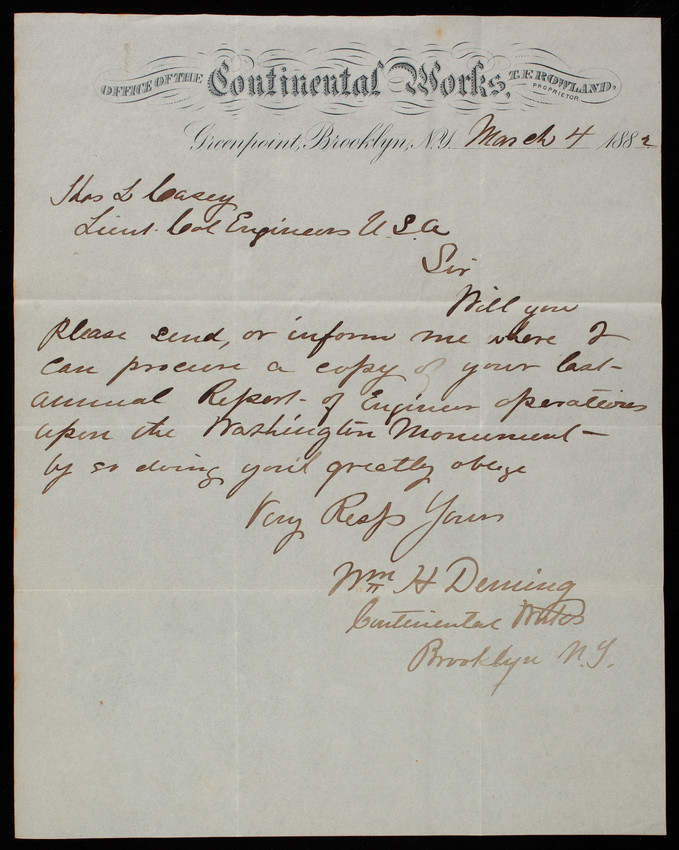 OFFICE OF THE Continental Works, T. F. ROWLAND, PROPRIETOR
Greenpoint, Brooklyn, N.Y. March 4 1882
Thos L Casey
Lieut. Col Engineers U.S.A
Sir
Will you
please send, or inform me where I
can procure a copy of your last
annual Report of Engineer operations
upon the Washington Monument
by so doing you'd greatly oblige
Very Resp Yours
Wm H Deming
Continental Works
Brooklyn N.Y.